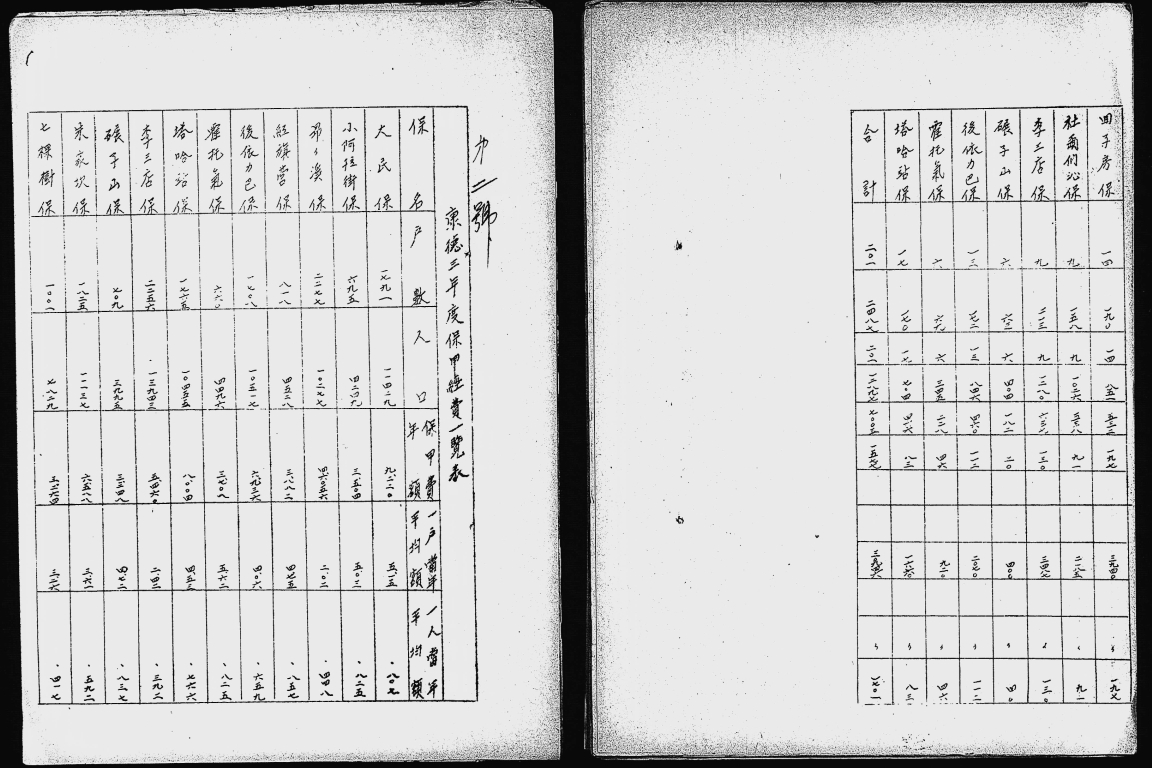 四子房保 一四 一九〇 一四 八五一 五三二 一九七 三九四〇 一九七
社爾们沁保 九 一五八 九 一〇二六 五三八 九一 二八五 九一
李三店保 九 二一三 九 一二八〇 六三六 一三〇 三四七 一三〇
碾子山保 六 六三 六 四〇四 一八二 二〇 四〇〇 四〇
後依力巴保 一三 一七二 一三 八四六 四六〇 一一二 二〇七〇 一一二
霍托氣保 六 六九 六 三四五 二二八 四六 九二〇 四六
塔哈站保 一七 一七〇 一七 七〇四 四二六 八三 一六六〇 八三
合計 二〇一 二四八七 二〇一
第二號
康德三年度保甲經費一覽表
保名 户數 人口 保甲費年額 一户當年平均額 一人當年平均額
大民保 一七九一 一一四二九 九、二二〇 五、一五 ・八〇七
小阿拉街保 六九五 四二四九 三、五〇四 五、〇三 ・八二五
邵々溪保 二二七七 一〇二七七 四、六〇三六 二、〇二 ・四四八
紅旗营保 八一八 四五二八 三、八八二 四、七五 ・八五七
後依力巴保 一七〇八 一〇五一七 六、九三六 四、〇六 ・六五九
霍托氣保 六六〇 四四九六 三、七〇八 五、六二 ・八二五
塔哈站保 一七六五 一〇四五五 八、〇〇四 四、五三 ・七六六
李三店保 二二五六 一三九四三 五、四六〇 二、四二 ・三九二
碾子山保 七〇九 三九九五 三、三四八 四、七二 ・八三七
朱家坎保 一八二五 一一一三七 六、五八八 三、六一 ・五九二
七棵樹保 一〇〇一 七八二九 三、二六四 三、二六 ・四一七